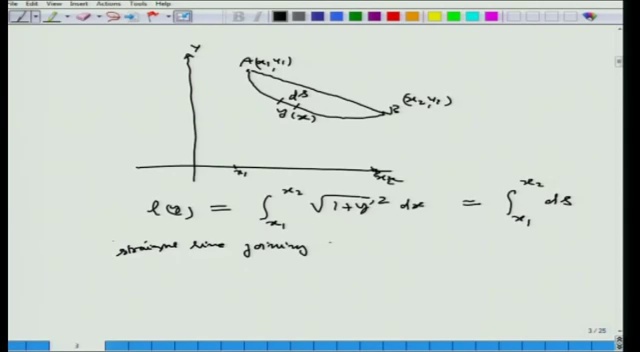 View Insert Actions Tools Help
B I
y
A(x₁,y₁)
ds
B (x₂,y₁)
y(x)
x₁
l(y) = ∫_{x₁}^{x₂} √(1+y'²) dx = ∫_{x₁}^{x₂} ds
straight line joining
3 / 25
3